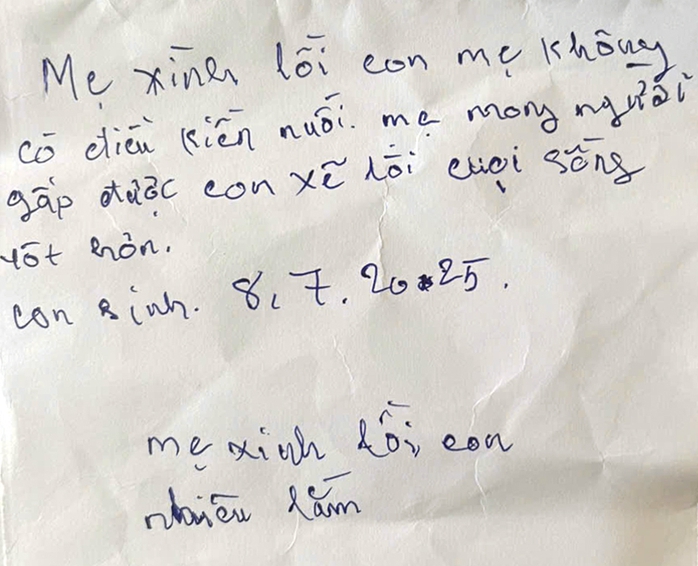 Mẹ xình lỗi con mẹ không
có điều kiến nuôi. mẹ mong người
gấp được con xẽ lỗi cuọi sống
tốt hơn.
con sinh. 8, 7. 2025.
mẹ xinh lỗi, con
nhiều lắm